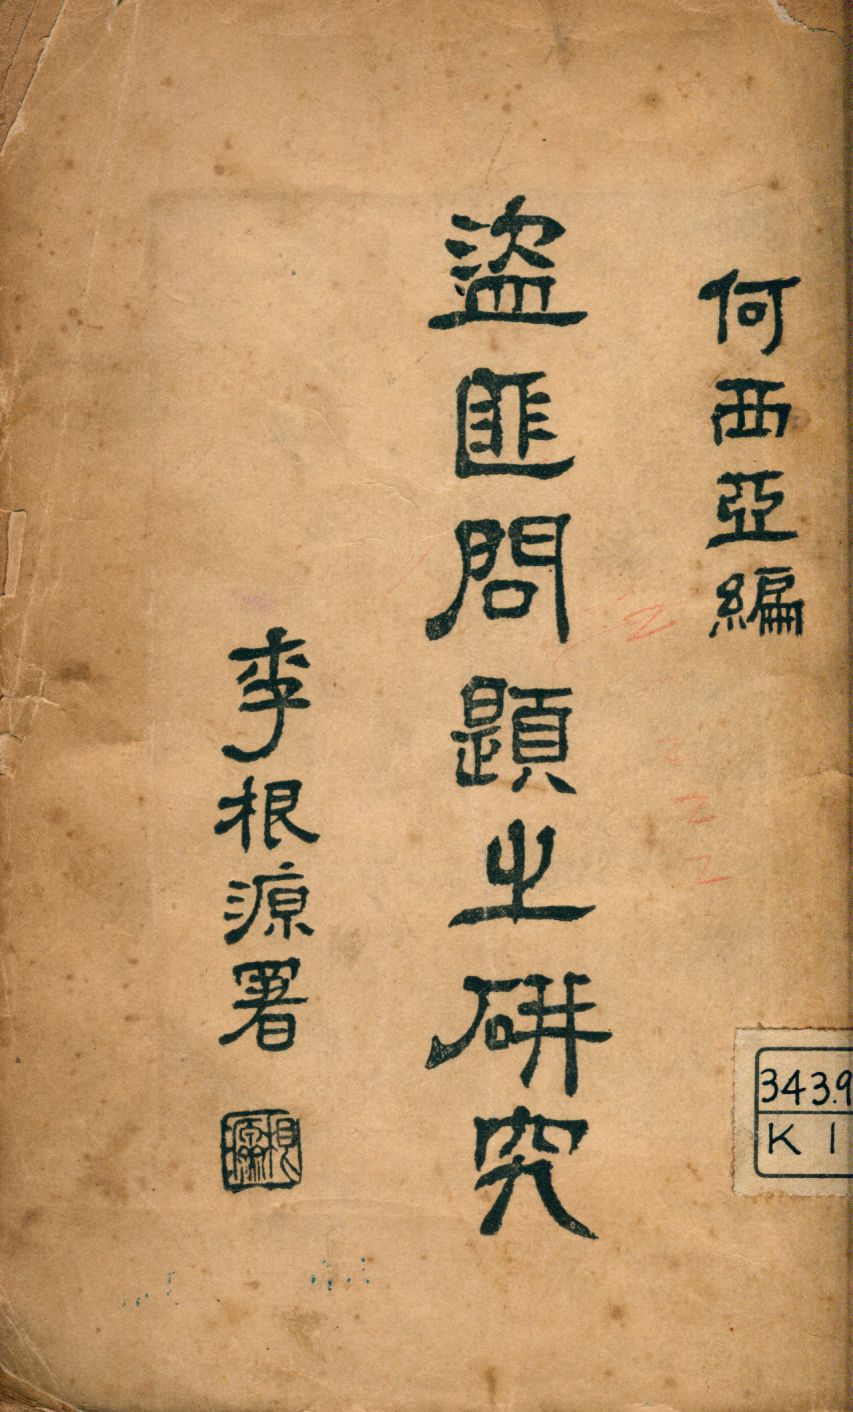 何西亞編
盜匪問題之研究
李根源署
根源
343.9
K 1